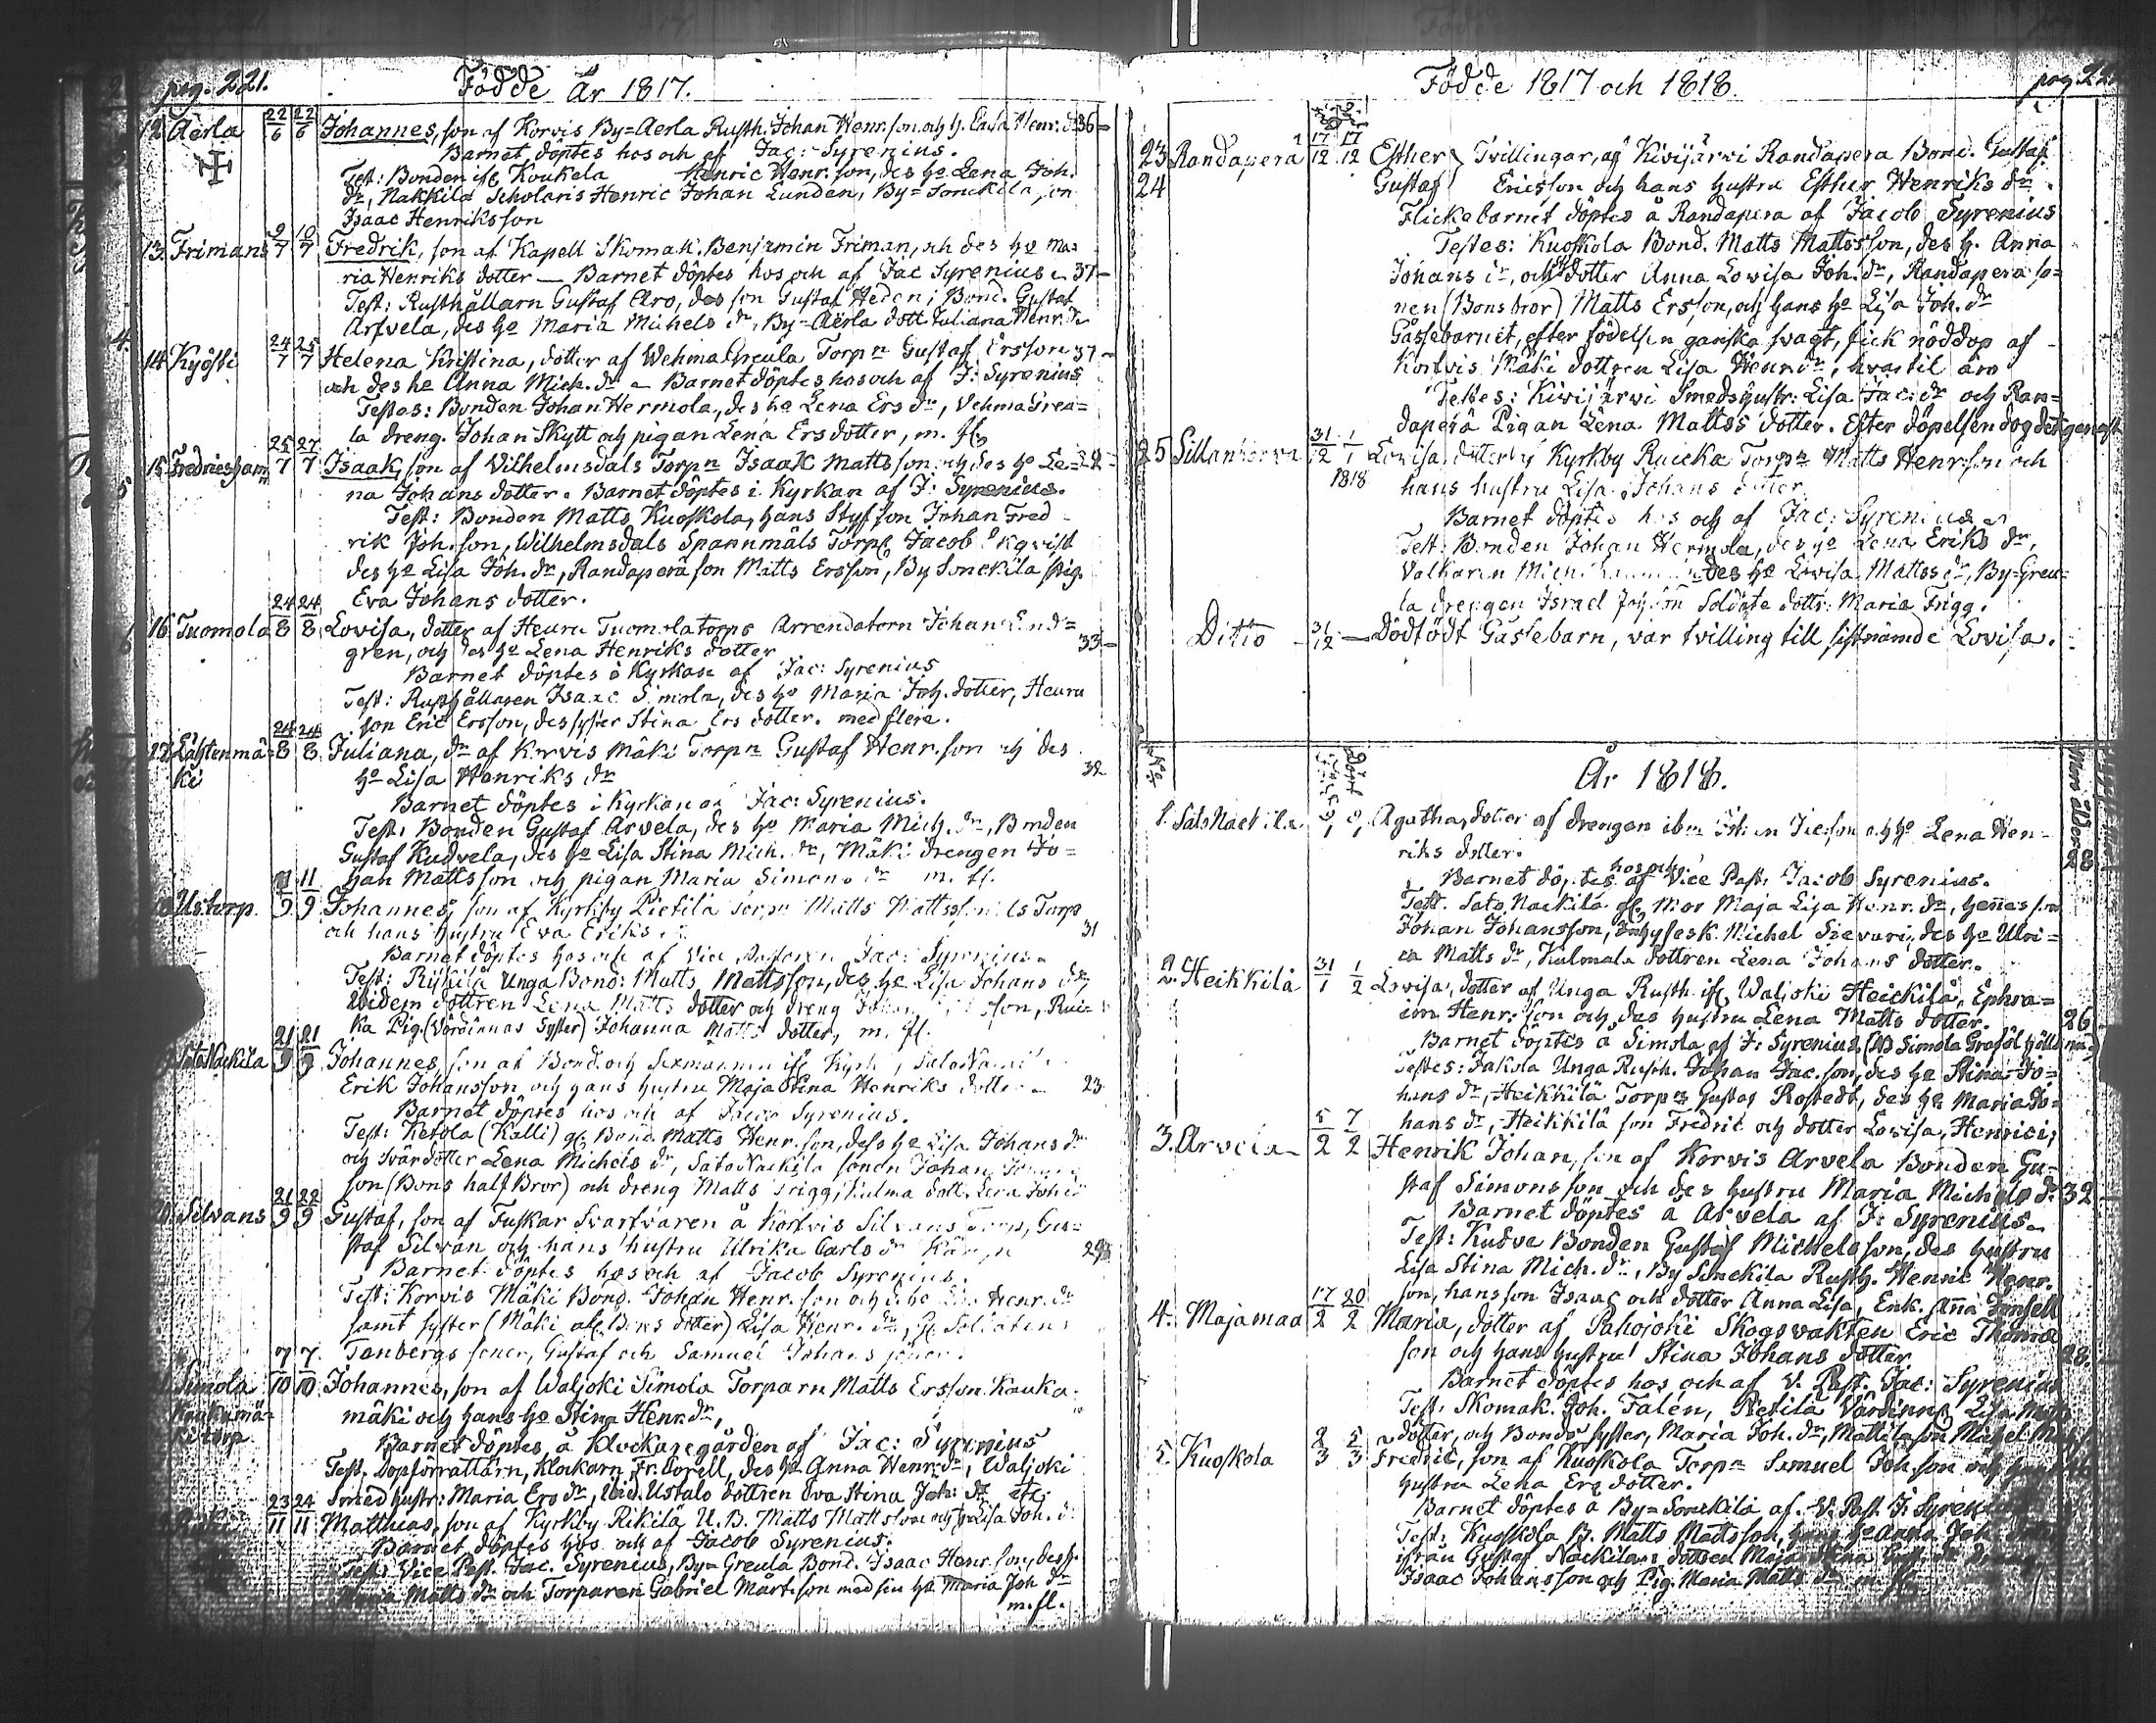 pag. 221. Födde År 1817.
12 Aerla 22/6 22/6 Johannes, son af Korvis By=Aerla Rusth. Johan Henr. son och h. Caisa Henr. dr 36
Barnet döptes hos och af Jac: Syrenius.
Test: Bonden Koukela Henric Henr. son, des ho Lena Joh.
dr, Nakkila Scholaris Henric Johan Lunden, By=Sonckila son
Isaac Henriksson
13. Frimans 9/7 10/7 Fredrik, son af Kapell Skomak. Benjamin Friman, och des ho Ma=
ria Henriks dotter — Barnet döptes hos och af Jac Syrenius 37
Test: Rusthållarn Gustaf Aro, des son Gustaf Heden; Bond. Gustaf
Arfvela, des ho Maria Michels dr, By=Aerla dott Juliana Henr. dr
14. Kyösti 24/7 25/7 Helena Kristina, dotter af Wehma Greula Torpn Gustaf Ersson 37
och des ho Anna Mich. dr — Barnet döptes hos och af J: Syrenius
Testes: Bonden Johan Hermola, des ho Lena Ers dr, Vehma Greu=
la dreng. Johan Skytt och pigan Lena Ersdotter, m. fl.
15. Fredricsham 25/7 27/7 Isaak, son af Vilhelmsdals Torpn Isaak Mattsson och des ho Le= 22
na Johans dotter. Barnet döptes i Kyrkan af J: Syrenius.
Test: Bonden Matts Kuoskola, hans Styfson Johan Fred
rik Joh. son, Wilhelmsdals Spannmåls Torp. Jacob Ekqvist
des ho Lisa Joh. dr, Randaperä son Matts Ersson, By Sonckila pig.
Eva Johans dotter.
16. Tuomola 24/8 24/8 Lovisa, dotter af Heuru Tuomola torps Arrendatorn Johan Lind=
gren, och des ho Lena Henriks dotter 33
Barnet döptes i Kyrkan af Jac: Syrenius
Test: Rusthållaren Isaac Simola, des ho Maria Joh. dotter, Heuru
son Eric Ersson, des syster Stina Ers dotter. med flera.
17. Lähtenmä= 24/8 24/8 Juliana, dr af Korvis Mäki Torpn Gustaf Henr. son och des
ki ho Lisa Henriks dr 32
Barnet döptes i Kyrkan af Jac: Syrenius.
Test: Bonden Gustaf Arvela, des ho Maria Mich. dr, Bonden
Gustaf Kudvela, des ho Lisa Stina Mich. dr, Mäki drengen Jo=
han Mattsson och pigan Maria Simons dr m. fl.
Ustorp. 11/9 11/9 Johannes, son af Kyrkby Pietilä Torpn Matts Mattsson Us Torp
och hans hustru Eva Eriks 31
Barnet döptes hos och af Vice Pastoren Jac: Syrenius
Test: Rijkilä Unga Bond: Matts Mattsson, des ho Lisa Johans dr
Ibidem dottren Lena Matts dotter och dreng son, Ruic=
ka Pig. (Värdinnas Syster) Johanna Matts dotter, m. fl.
SatoNackila 21/9 21/9 Johannes, son af Bond. och Sexmannen Kyrk, SatoNacki
Erik Johansson och hans hustru Maja Stina Henriks dotter 23
Barnet döptes hos och af Jacob Syrenius.
Test: Ketola (Kalli) Bond. Matts Henr. son, dess ho Lisa Johans dr
och Svärdotter Lena Michels dr, SatoNackila sonen Johan
son (Bons half Bror) och dreng Matts Frigg, Kulma dott. Lena Johans
20. Silvans 21/9 22/9 Gustaf, son af Fuskar Svarfvaren å Korfvis Silvans Torp, Gus=
staf Silvan och hans hustru Ulrika Carls dr 29
Barnet döptes hos och af Jacob Syrenius.
Test: Korvis Mäki Bond. Johan Henr. son och Henr. dr
samt syster (Mäki Bons dotter) Lisa Henr. dr, Soldatens
Tanbergs söner, Gustaf och Samuel Johans söner.
Simola 7/10 7/10 Johannes, son af Waljoki Simola Torparn Matts Ersson Kauka
Kaukamä= mäki och hans ho Stina Henr. dr.
ki torp
Barnet döptes å Klockaregården af Jac: Syrenius
Test. Dopförrattärn, Klockarn Fr. Corell, des ho Anna Henr. dr, Waljoki
Smed hustr: Maria Ers dr, Ustalo dottren Eva Stina Joh: dr etc:
23/11 24/11 Matthias, son af Kyrkby Rikilä U. B. Matts Mattsson och ho Lisa Joh. d.
Barnet döptes hos och af Jacob Syrenius.
Test: Vice Past. Jac. Syrenius, By=Greula Bond. Isaac Henr. son, dess h.
Maria Matts dr och Torparen Gabriel Mart. son med sin ho Maria Joh dr
m. fl.
Födde 1817 och 1818. pag. 22
23 Randaperä 17/12 17/12 Esther } Tvillingar, af Kivijärvi Randapera Bond. Gustaf
24 Gustaf } Ericsson och hans hustru Esther Henriks dr.
Flickebarnet döptes å Randapera af Jacob Syrenius
Testes: Kuoskola Bond. Matts Mattsson, des h. Anna
Johans dr, och dotter Anna Lowisa Joh. dr, Randapera so=
nen (Bons bror) Matts Ersson, och hans ho Lisa Joh. dr
Gåssebarnet, efter födelsen ganska svagt, fick nöddop af
Korvis Mäki dottren Lisa Henr. dr, hvartil äro
Testes: Kivijärvi Smeds hustr: Lisa Jac: dr och Ran=
daperä Pigan Lena Mattss dotter. Efter döpelsen dog det genast
25 Sillankorva 31/12 1/1 1818 Lovisa, dotter af Kyrkby Ruicka Torpn Matts Henr. son och
hans hustru Lisa Johans dotter
Barnet döptes hos och af Jac: Syrenius
Test: Bonden Johan Hermola, des ho Lena Eriks dr,
Valkaren Mich. des ho Lovisa Mattss dr, By=Greu=
la drengen Israel Soldate dottr: Maria Frigg.
Ditto 31/12 — Dödfödt Gåssebarn, var tvilling till sistnämde Lovisa.
År 1818.
Döpt
Mors Ålder
1. Sato Nackila Agatha, dotter af drengen Johan och ho Lena Hen=
riks dotter. 28
Barnet döptes hos och af Vice Past. Jacob Syrenius.
Test. Sato Nackila Mor Maja Lisa Henr. dr, hennes son
Johan Johansson, Michel Sievari, des ho Ulri=
ca Matts dr, Kulmala dottren Lena Johans dotter.
2. Heikkilä 31/1 1/2 Lovisa, dotter af Unga Rusth. Waljoki Heickilä, Ephra=
im Henr. son och des hustru Lena Matts dotter. 26
Barnet döptes å Simola af J: Syrenius, (NB Simola Graföl hölls
Testes: Jakola Unga Rusth. Johan Jac. son, des ho Stina Jo=
hans dr, Heikkilä Torpn Gustaf Rostedt, des ho Maria Jo=
hans dr, Heikkilä son Fredric och dotter Lovisa, Henrici;
3. Arvela 5/2 7/2 Henrik Johan, son af Korvis Arvela Bonden Gu=
staf Simonsson och des hustru Maria Michels dr 32
Barnet döptes å Arvela af J: Syrenius
Test: Kudva Bonden Gustaf Michelsson, des hustru
Lisa Stina Mich. dr, By Sonckila Rusth. Henric Henr.
son, hans son Isaac och dotter Anna Lisa, Enk. Anna Jansell
4. Majamaa 17/2 20/2 Maria, dotter af Pahojoki Skogsvakten Eric Thomas
son och hans hustru Stina Johans dotter 28.
Barnet döptes hos och af V. Past. Jac: Syrenius
Test. Skomak. Joh. Falen, Pietilä Värdinna Lisa Matts
dotter, och Bonds Syster, Maria Joh. dr, Mattila son Michel
5. Kuoskola 2/3 5/3 Fredric, son af Kuoskola Torpn Samuel Joh. son och hans
hustru Lena Ers dotter.
Barnet döptes å By=Sonckila af V. Past. J. Syrenius
Test: Kuoskola B. Matts Mattsson, hans ho Anna Joh.
ifrån Gustaf Näckilans dottren Maja Stina
Isaac Johansson och Pig. Maria Matts dr m. fl.